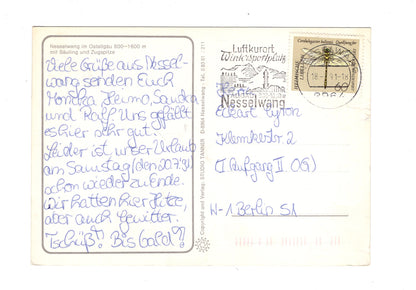 Nesselwang im Ostallgäu 800–1600 m
mit Säuling und Zugspitze
Viele Grüße aus Nessel-
wang senden Euch
Monika, Heimo, Sandra
und Ralf! Uns gefällt
es hier sehr gut.
Leider ist unser Urlaub
am Samstag (den 20.7.91)
schon wieder zu Ende.
Wir hatten hier Hitze,
aber auch Gewitter.
Tschüß! Bis bald!
Copyright und Verlag: STUDIO TANNER · D-8964 Nesselwang · Tel.
Luftkurort
Wintersportplatz
Nesselwang
60
Klemkestr. 2
(Aufgang II OG)
W-1 Berlin 51